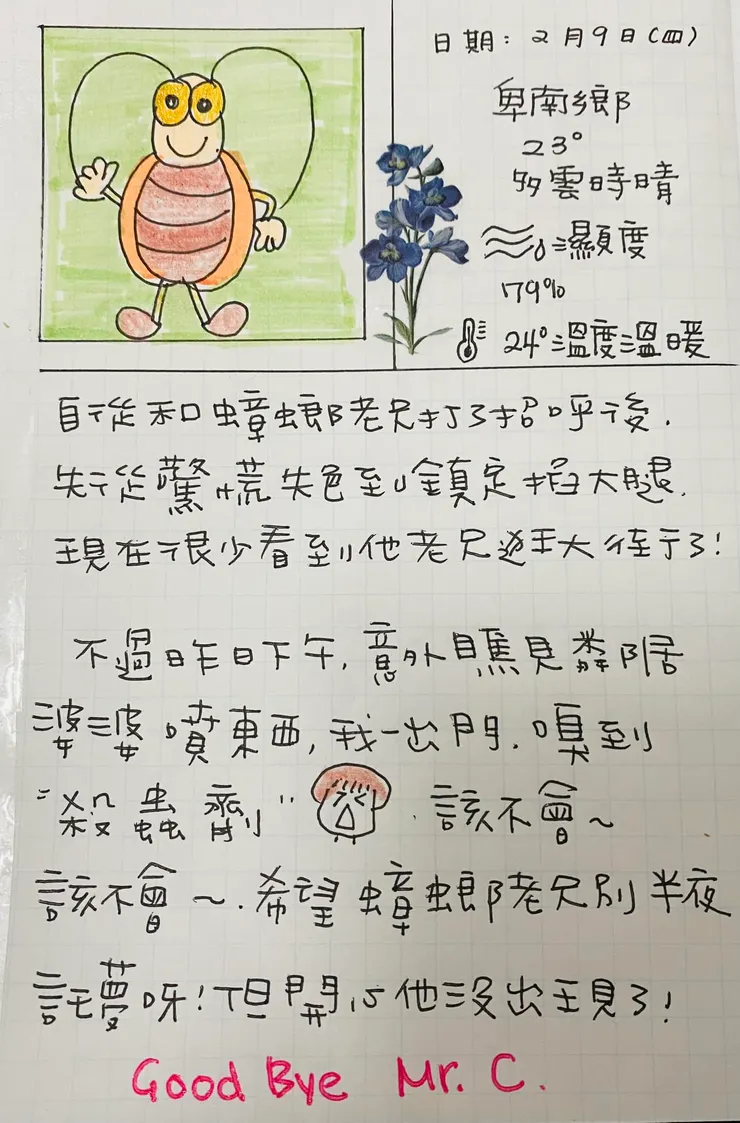 日期：2月9日(四)
卑南鄉
23°
多雲時晴
濕顯度
79%
24°溫度溫暖
自從和蟑螂老兄打了招呼後.
先從驚慌失色到唅鎮定掐大腿.
現在很少看到他老兄逛大街了!
不過昨日下午,意外瞧見鄰居
婆婆噴東西,我一出門.嗅到
"殺蟲劑".該不會~
該不會~.希望蟑螂老兄別半夜
託夢呀!但開心他沒出現了!
Good Bye Mr. C.